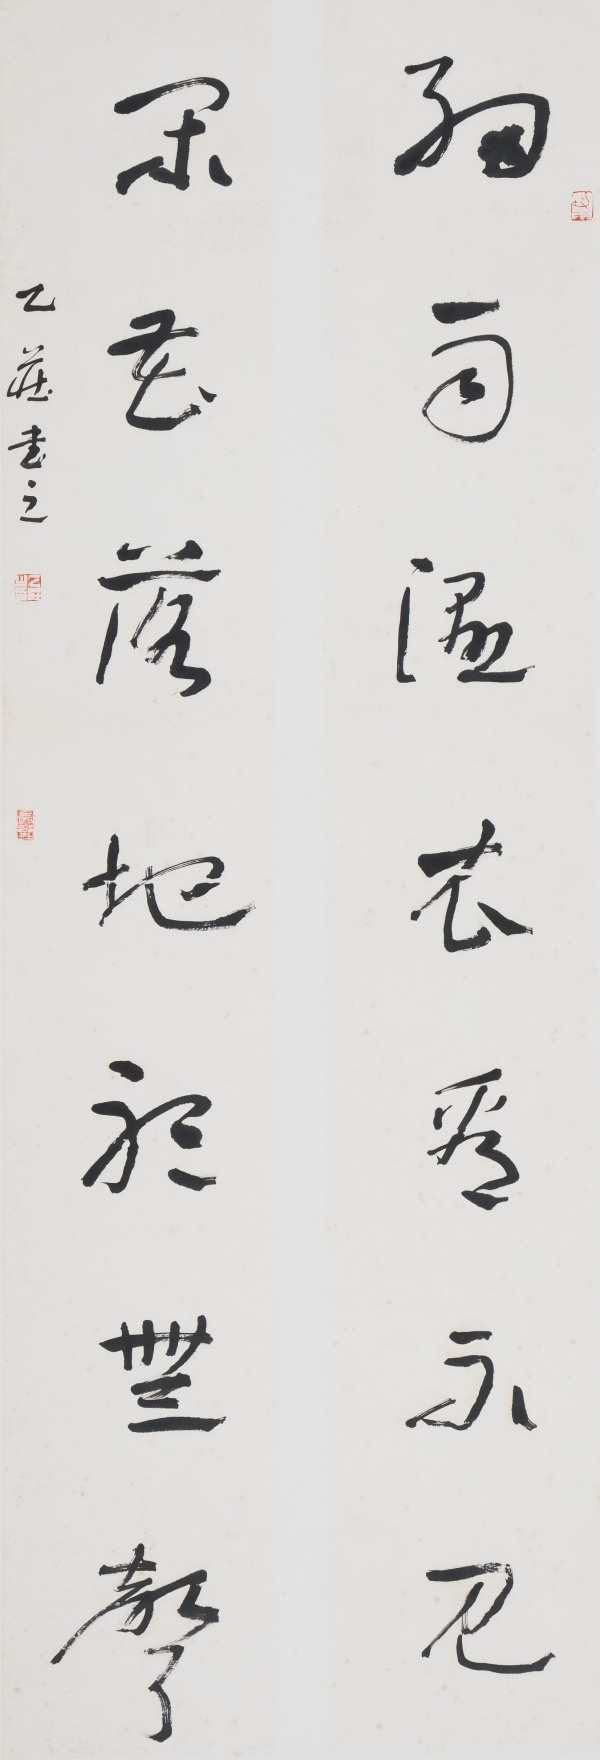 細雨濕衣看不見
閑花落地聽無聲
乙莊書之